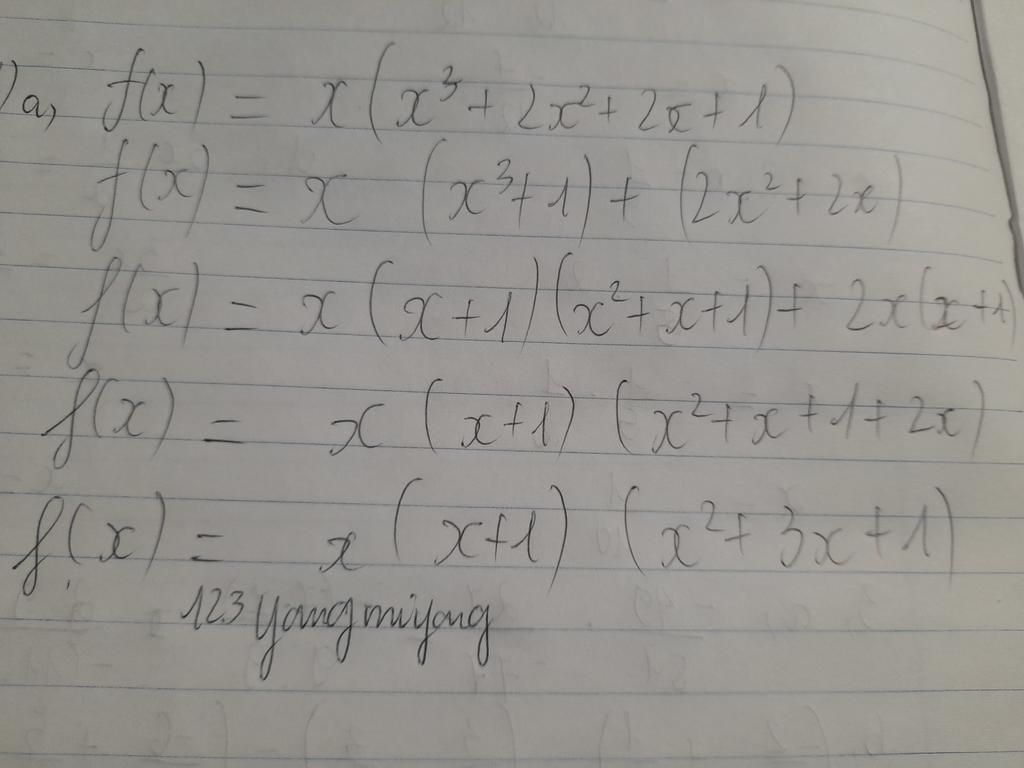 1) a, f(x) = x (x³ + 2x² + 2x + 1)
f(x) = x (x³+1) + (2x² + 2x)
f(x) = x (x+1) (x²+x+1) + 2x (x+1)
f(x) = x (x+1) (x²+x+1+2x)
f(x) = x (x+1) (x²+3x+1)
123 yangmiyang